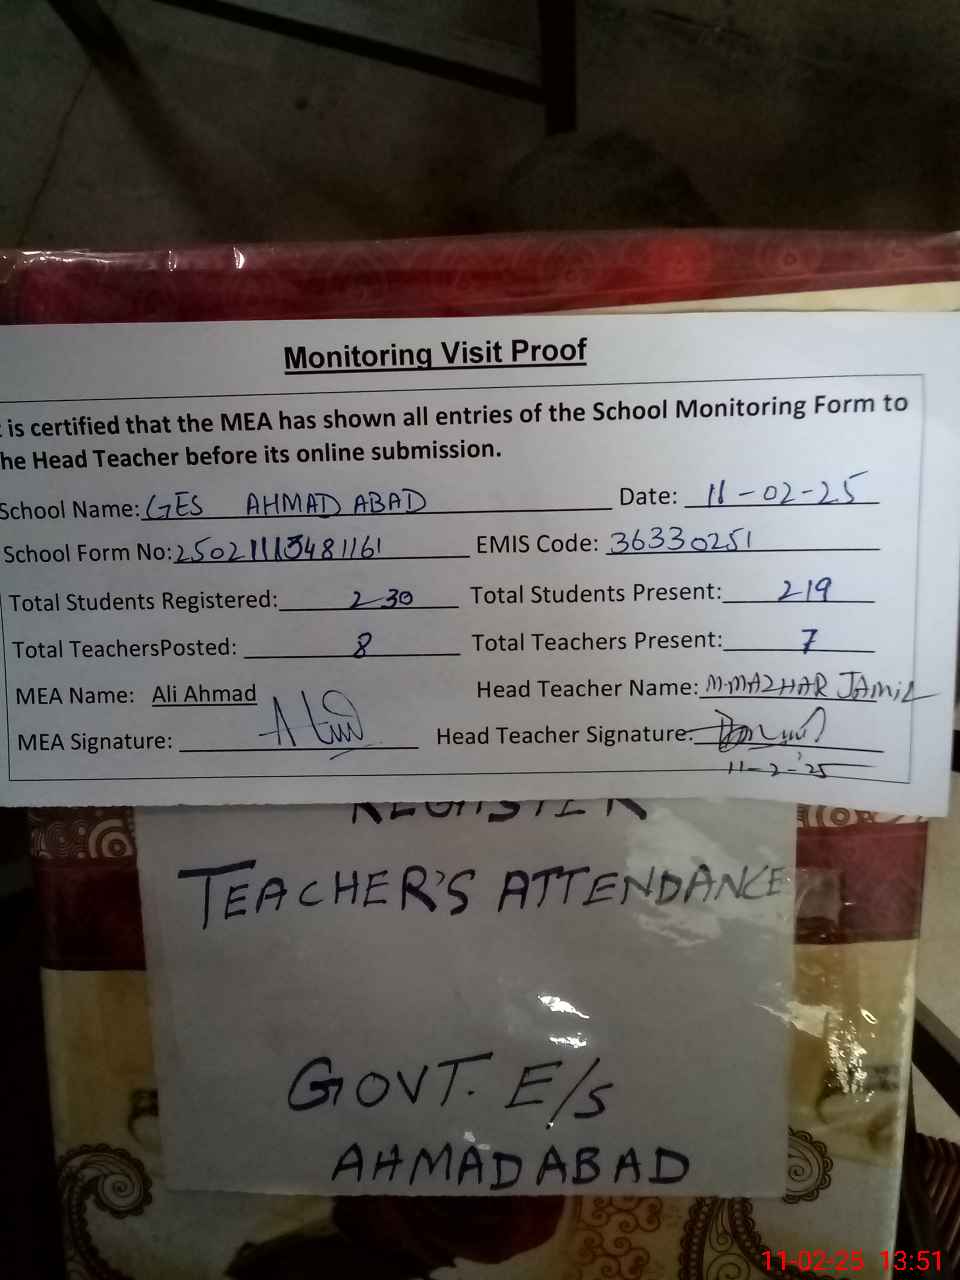 Monitoring Visit Proof
is certified that the MEA has shown all entries of the School Monitoring Form to
he Head Teacher before its online submission.
School Name: GES AHMAD ABAD Date: 11-02-25
School Form No: 25021113481161 EMIS Code: 36330251
Total Students Registered: 230 Total Students Present: 219
Total TeachersPosted: 8 Total Teachers Present: 7
MEA Name: Ali Ahmad Head Teacher Name: M.MAZHAR JAMIL
MEA Signature: Head Teacher Signature:
11-2-25
REGISTER
TEACHER'S ATTENDANCE
GOVT. E/S
AHMAD ABAD
11-02-25 13:51